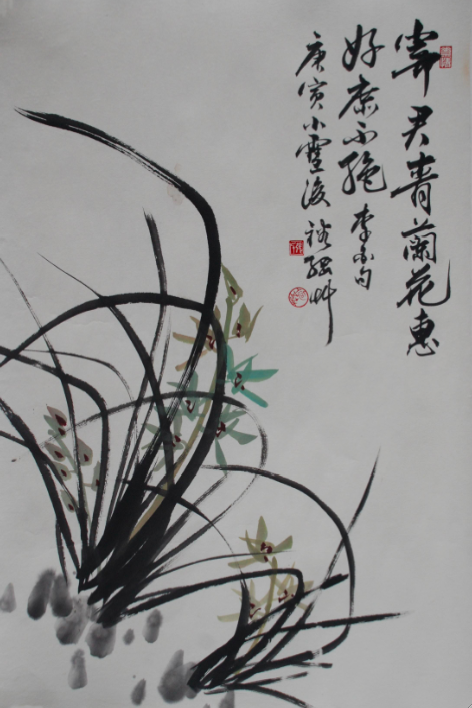 寄君青蘭花惠
好庶不絶 李白句
庚寅小雪後 裕艸